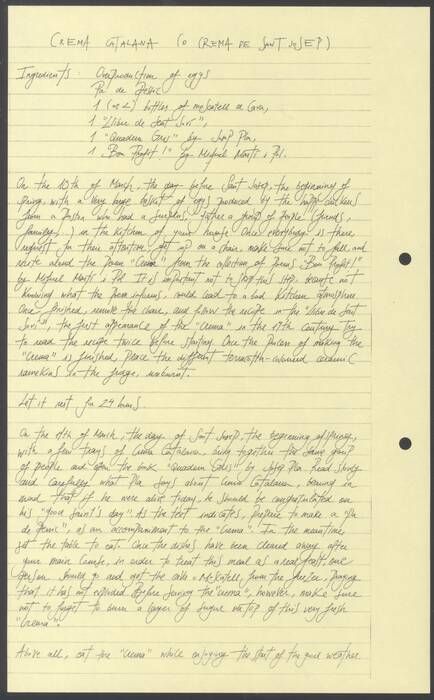 CREMA CATALANA (O CREMA DE SANT JOSEP)
Ingredients: Overproduction of eggs
Pa de Pessic
1 (or 2) bottles of mescatell or Cava,
1 "Llibre de Sent Soví",
1 "Quadern Gris" by Josep Pla,
1 "Bon Profit!" by Miquel Martí i Pol.
On the 18th of March, the day before Sant Josep, the beginning of
spring, with a very large basket of eggs produced by the happy chickens
from a Pastor who had a surplus, gather a group of people (friends,
family...) in the kitchen of your house. Once everybody is there,
request for their attention, get up on a chair, make sure not to fall, and
recite aloud the Poem "Crema" from the collection of Poems "Bon Profit!"
by Miquel Martí i Pol. It is important not to skip this step, because not
knowing what the Poem explains, could lead to a bad kitchen atmosphere.
Once finished, remove the chair, and follow the recipe in the "Llibre de Sent
Soví", the first appearance of the "Crema" in the 14th century. Try
to read the recipe twice before starting. Once the Process of making the
"Crema" is finished, Place the different terracotta-coloured ceramic
ramekins in the fridge, unburnt.
Let it rest for 24 hours.
On the 19th of March, the day of Sant Josep, the beginning of spring,
with a few trays of Crema Catalana, bring together the same group
of people and open the book "Quadern Gris" by Josep Pla. Read slowly
and carefully what Pla says about Crema Catalana, bearing in
mind that if he were alive today, he should be congratulated on
his "good Saint's day". As the text indicates, prepare to make a "Pa
de Pessic", as an accompaniment to the "Crema". In the meantime,
set the table to eat. Once the dishes have been cleared away after
your main course, in order to treat this meal as a real feast, one
person should go and get the cava or Mescatell from the freezer, Praying
that it has not exploded. Before serving the "Crema", however, make sure
not to forget to burn a layer of sugar on top of this very fresh
"Crema".
Above all, eat the "Crema" while enjoying the start of the good weather.